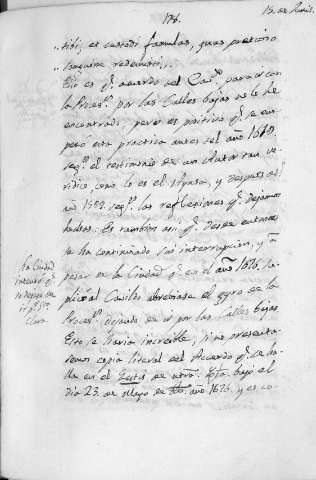 176.
13. de Junio.
" tibi, et custodi famulas, quas pretioso
" sanguine redemisti,,.
Ello es q.e acuerdo del Cav.do para ir con
la Proces.n por las Calles bajas no le he
encontrado pero es positivo q.e se em-
pezó esta practica antes del año 1609
seg.n el testimonio de un Autor tan ve-
ridico como lo es el Aynsa, y despues del
año 1593. seg.n las reflexiones q.e dejamos
hechas: Es tambien asi q.e desde entonces
se ha continuado sin interrupcion, y á
pesar de la Ciudad q.e en el año 1676. su-
plicó al Cavildo abreviase el gyro de la
Proces.n dejando de ir por las Calles bajas
Esto se haria increible, si no presenta-
remos copia literal del Acuerdo q.e se ha-
lla en el de bajo el
dia 23. de Mayo de año 1676. y es co-
La Ciudad
intentó q.e
se dejase de
ir p.r S.ta
Clara.